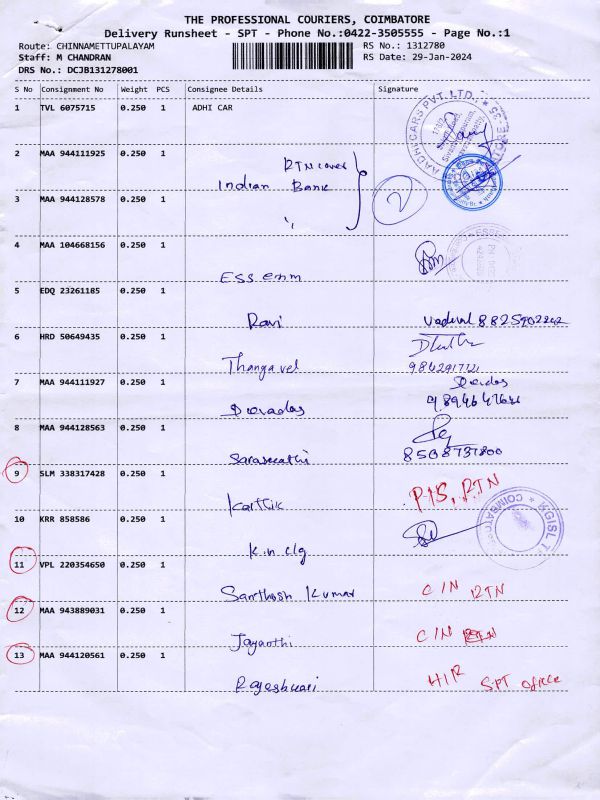 THE PROFESSIONAL COURIERS, COIMBATORE
Delivery Runsheet - SPT - Phone No.:0422-3505555 - Page No.:1
Route: CHINNAMETTUPALAYAM RS No.: 1312780
Staff: M CHANDRAN RS Date: 29-Jan-2024
DRS No.: DCJB131278001
S No Consignment No Weight PCS Consignee Details Signature
1 TVL 6075715 0.250 1 ADHI CAR
2 MAA 944111925 0.250 1
RTN cover
Indian Bank
3 MAA 944128578 0.250 1
2
4 MAA 104668156 0.250 1
Ess emm
5 EDQ 23261185 0.250 1
Ravi 8825902242
6 HRD 50649435 0.250 1
Thangavel
7 MAA 944111927 0.250 1
Devadas
8 MAA 944128563 0.250 1
Saraswathi
9 SLM 338317428 0.250 1
Karthic RTN
10 KRR 858586 0.250 1
K.n clg
11 VPL 220354650 0.250 1
Santhosh Kumar C/N RTN
12 MAA 943889031 0.250 1
Jayanthi C/N RTN
13 MAA 944120561 0.250 1
Rajeshwari H/R SPT office